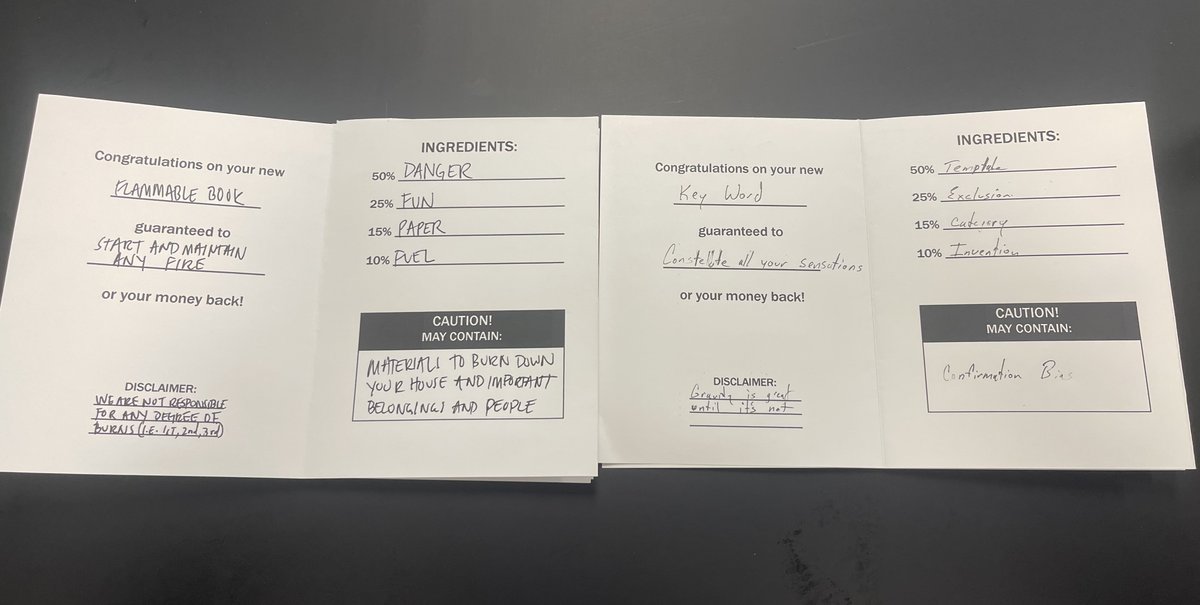 Congratulations on your new
FLAMMABLE BOOK
guaranteed to
START AND MAINTAIN
ANY FIRE
or your money back!
DISCLAIMER:
WE ARE NOT RESPONSIBLE
FOR ANY DEGREE OF
BURNS (I.E. 1ST, 2nd, 3rd)
INGREDIENTS:
50% DANGER
25% FUN
15% PAPER
10% FUEL
CAUTION!
MAY CONTAIN:
MATERIALS TO BURN DOWN
YOUR HOUSE AND IMPORTANT
BELONGINGS AND PEOPLE
Congratulations on your new
Key Word
guaranteed to
Constellate all your sensations
or your money back!
DISCLAIMER:
Gravity is great
until it's not
INGREDIENTS:
50% Template
25% Exclusion
15% Category
10% Invention
CAUTION!
MAY CONTAIN:
Confirmation Bias